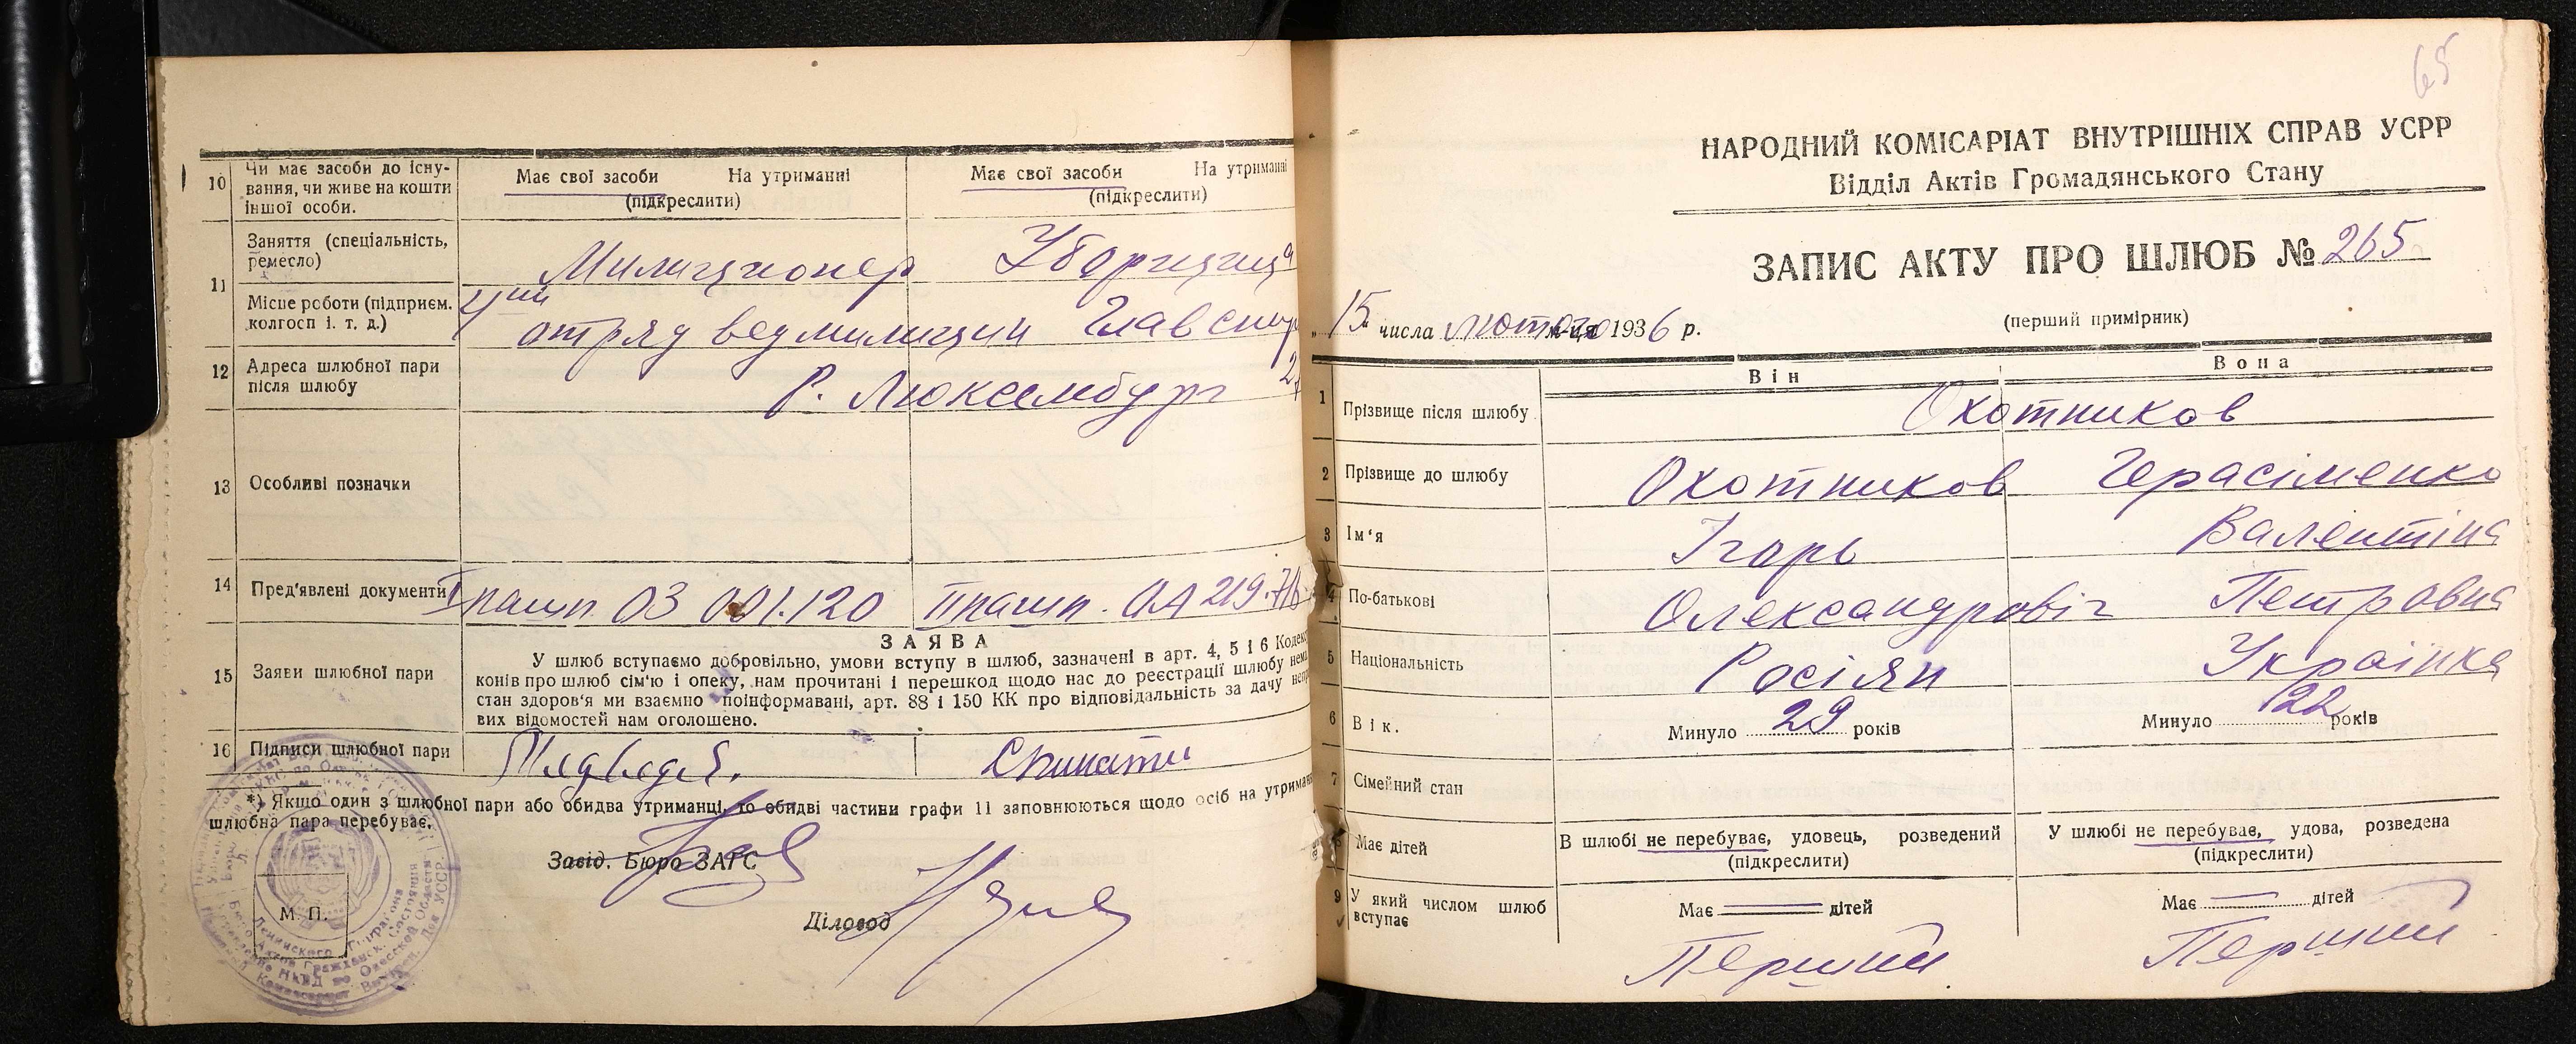 10 Чи має засоби до існу-
вання, чи живе на кошти
іншої особи.
Має свої засоби На утриманні
(підкреслити)
Має свої засоби На утриманні
(підкреслити)
11 Заняття (спеціальність,
ремесло)
Милиционер Уборщица
Місце роботи (підприєм.
колгосп і. т. д.)
отряд ведмилиции Главспир
12 Адреса шлюбної пари
після шлюбу
Р. Люксембург
13 Особливі позначки
14 Пред'явлені документи
I пашп. ОЗ 001.120 II пашп. ОА 219.716
15 Заяви шлюбної пари
ЗАЯВА
У шлюб вступаємо добровільно, умови вступу в шлюб, зазначені в арт. 4, 5 і 6 Кодекс
конів про шлюб сім'ю і опеку, нам прочитані і перешкод щодо нас до реєстрації шлюбу нема
стан здоров'я ми взаємно поінформавані, арт. 88 і 150 КК про відповідальність за дачу непр
вих відомостей нам оголошено.
16 Підписи шлюбної пари
*) Якщо один з шлюбної пари або обидва утриманці, то обидві частини графи 11 заповнюються щодо осіб на утриман
шлюбна пара перебуває.
Завід. Бюро ЗАГС
М. П.
Діловод
65
НАРОДНИЙ КОМІСАРІАТ ВНУТРІШНІХ СПРАВ УСРР
Відділ Актів Громадянського Стану
ЗАПИС АКТУ ПРО ШЛЮБ № 265
„15" числа лютого м-ця 1936 р.
(перший примірник)
Він Вона
1 Прізвище після шлюбу Охотников
2 Прізвище до шлюбу Охотников Герасіменко
3 Ім'я Ігорь Валентіна
4 По-батькові Олександровіч Петровна
5 Національність Росіян Українка
6 Вік. Минуло 29 років Минуло 22 років
7 Сімейний стан
8 Має дітей
В шлюбі не перебуває, удовець, розведений
(підкреслити)
У шлюбі не перебуває, удова, розведена
(підкреслити)
9 У який числом шлюб
вступає
Має дітей Має дітей
Перший Перший